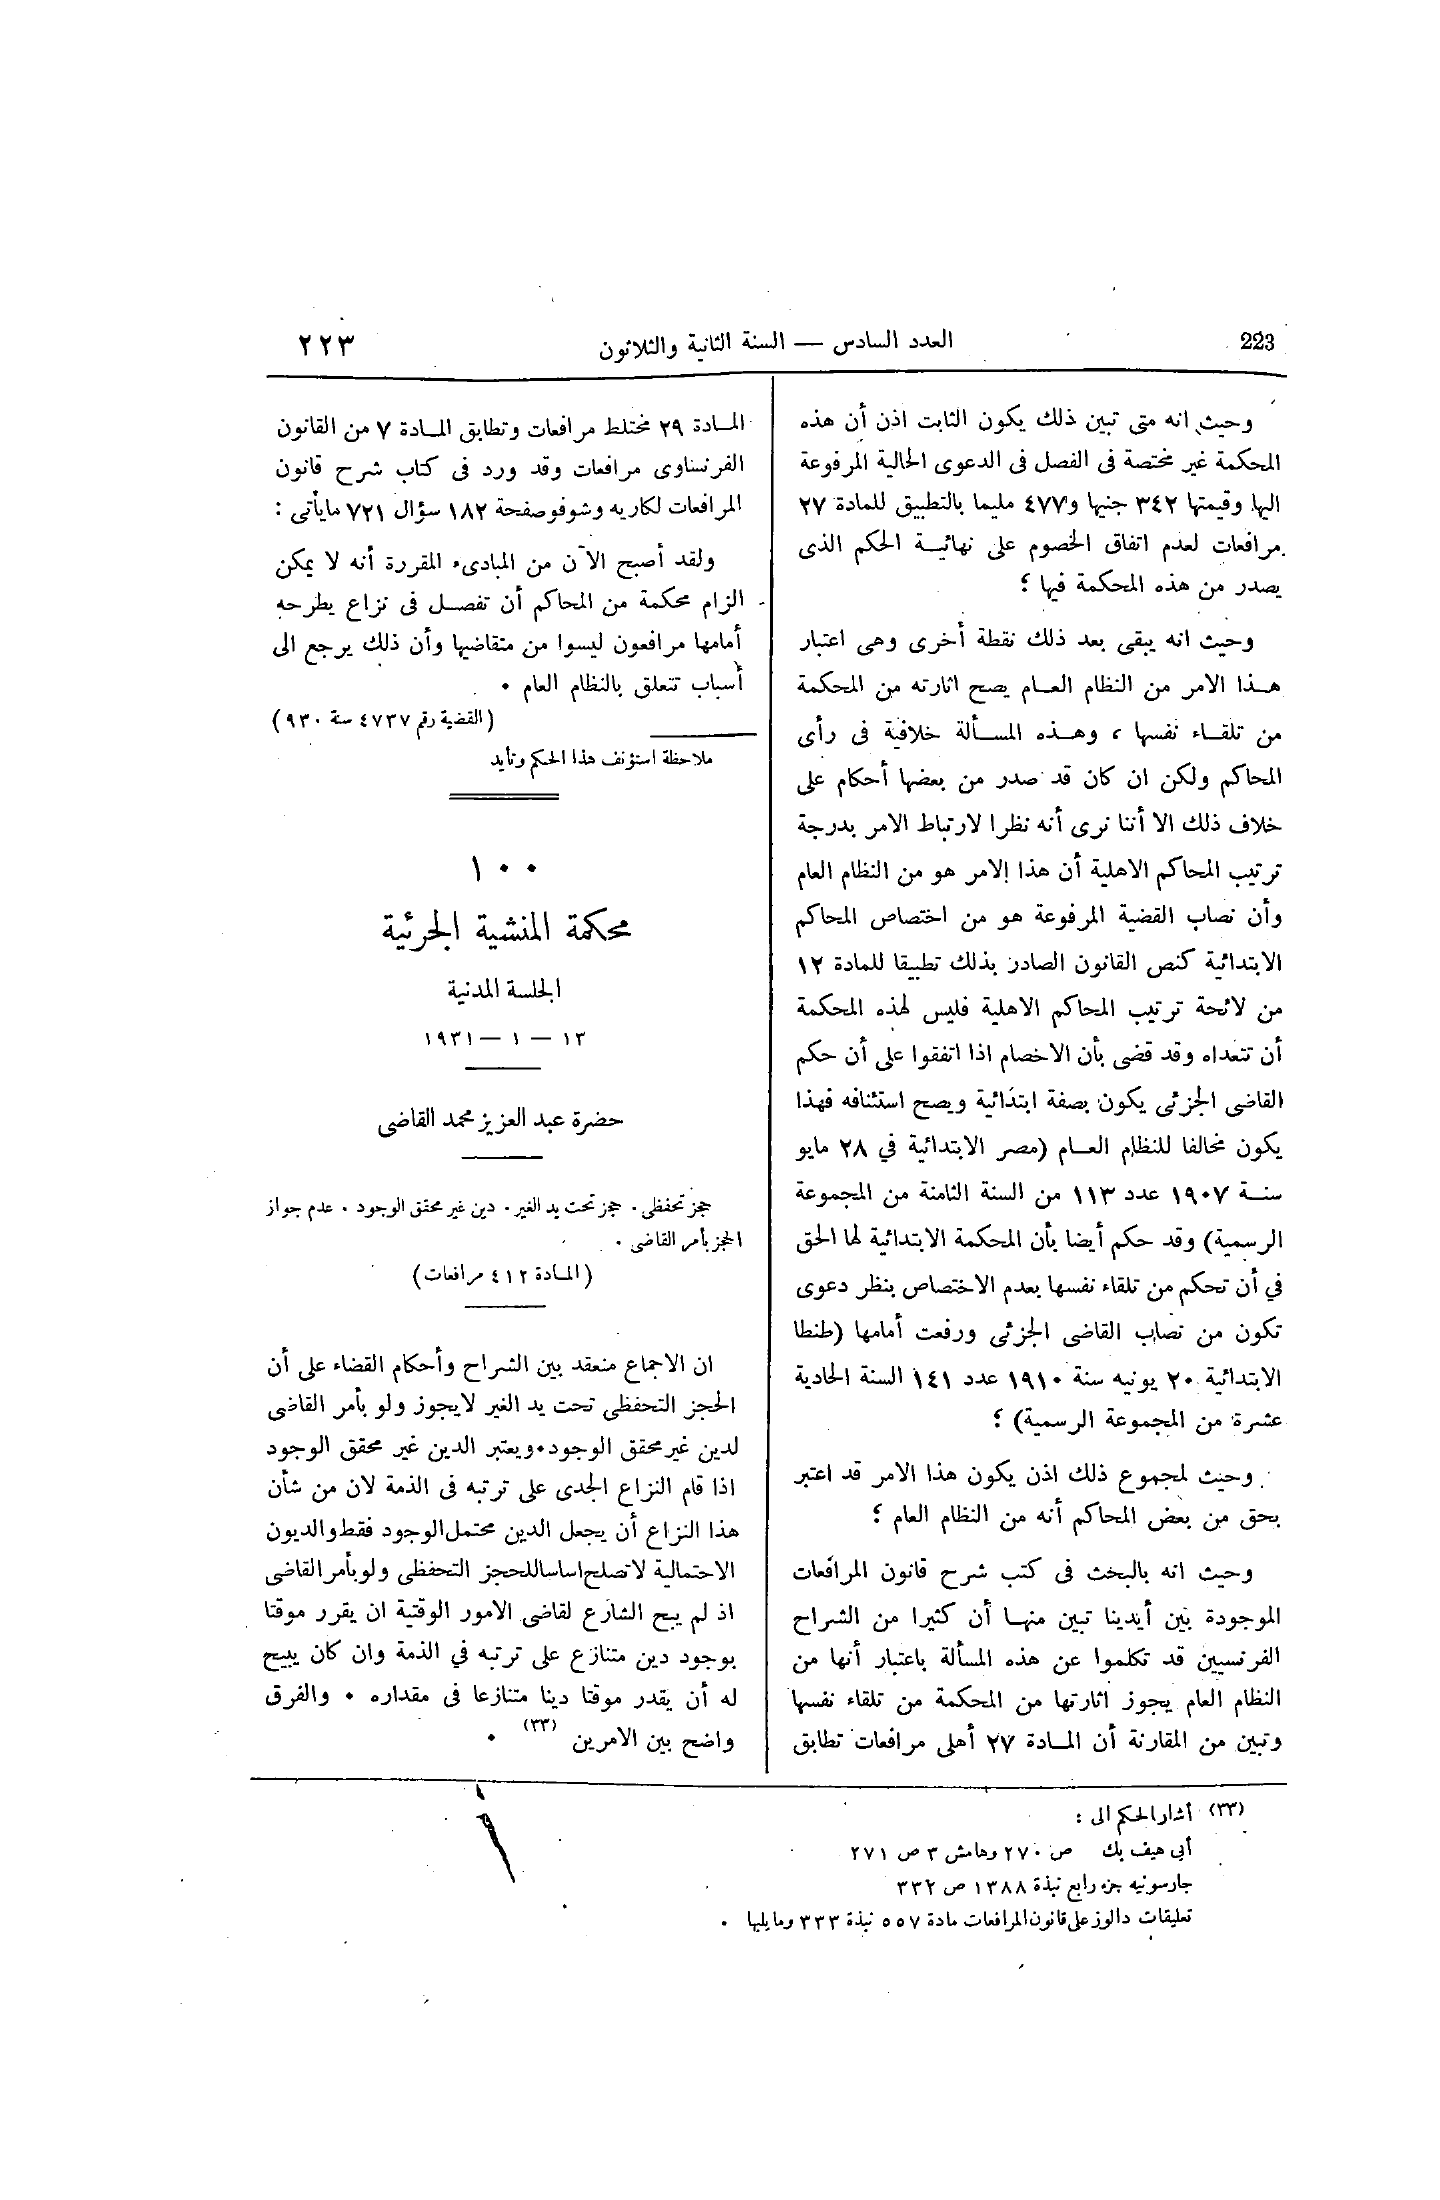 223
العدد السادس — السنة الثانية والثلاثون
٢٢٣
وحيث انه متى تبين ذلك يكون الثابت اذن أن هذه
المحكمة غير مختصة فى الفصل فى الدعوى الحالية المرفوعة
اليها وقيمتها ٣٤٢ جنيها و٤٧٧ مليما بالتطبيق للمادة ٢٧
مرافعات لعدم اتفاق الخصوم على نهائيــة الحكم الذى
يصدر من هذه المحكمة فيها ؟
وحيث انه يبقى بعد ذلك نقطة أخرى وهى اعتبار
هــذا الامر من النظام العــام يصح اثارته من المحكمة
من تلقــاء نفسها ، وهــذه المســألة خلافية فى رأى
المحاكم ولكن ان كان قد صدر من بعضها أحكام على
خلاف ذلك الا أننا نرى أنه نظرا لارتباط الامر بدرجة
ترتيب المحاكم الاهلية أن هذا الامر هو من النظام العام
وأن نصاب القضية المرفوعة هو من اختصاص المحاكم
الابتدائية كنص القانون الصادر بذلك تطبيقا للمادة ١٢
من لائحة ترتيب المحاكم الاهلية فليس لهذه المحكمة
أن تتعداه وقد قضى بأن الاخصام اذا اتفقوا على أن حكم
القاضى الجزئى يكون بصفة ابتدائية ويصح استئنافه فهذا
يكون مخالفا للنظام العــام (مصر الابتدائية في ٢٨ مايو
سنــة ١٩٠٧ عدد ١١٣ من السنة الثامنة من المجموعة
الرسمية) وقد حكم أيضا بأن المحكمة الابتدائية لها الحق
في أن تحكم من تلقاء نفسها بعدم الاختصاص بنظر دعوى
تكون من نصاب القاضى الجزئى ورفعت أمامها (طنطا
الابتدائية ٢٠ يونيه سنة ١٩١٠ عدد ١٤١ السنة الحادية
عشرة من المجموعة الرسمية) ؟
وحيث لمجموع ذلك اذن يكون هذا الامر قد اعتبر
بحق من بعض المحاكم أنه من النظام العام ؟
وحيث انه بالبحث فى كتب شرح قانون المرافعات
الموجودة بين أيدينا تبين منهــا أن كثيرا من الشراح
الفرنسيين قد تكلموا عن هذه المسألة باعتبار أنها من
النظام العام يجوز اثارتها من المحكمة من تلقاء نفسها
وتبين من المقارنة أن المــادة ٢٧ أهلى مرافعات تطابق
المــادة ٢٩ مختلط مرافعات وتطابق المــادة ٧ من القانون
الفرنساوى مرافعات وقد ورد فى كتاب شرح قانون
المرافعات لكاريه وشوفو صفحة ١٨٢ سؤال ٧٢١ مايأتى :
ولقد أصبح الآن من المبادىء المقررة أنه لا يمكن
الزام محكمة من المحاكم أن تفصــل فى نزاع يطرحه
أمامها مرافعون ليسوا من متقاضيها وأن ذلك يرجع الى
أسباب تتعلق بالنظام العام .
(القضية رقم ٤٧٣٧ سنة ٩٣٠)
ملاحظة استؤنف هذا الحكم وتأيد
١٠٠
محكمة المنشية الجزئية
الجلسة المدنية
١٣ — ١ — ١٩٣١
حضرة عبد العزيز محمد القاضى
حجز تحفظى . حجز تحت يد الغير . دين غير محقق الوجود . عدم جواز
الحجز بأمر القاضى .
(المــادة ٤١٢ مرافعات)
ان الاجماع منعقد بين الشراح وأحكام القضاء على أن
الحجز التحفظى تحت يد الغير لايجوز ولو بأمر القاضى
لدين غير محقق الوجود . ويعتبر الدين غير محقق الوجود
اذا قام النزاع الجدى على ترتبه فى الذمة لان من شأن
هذا النزاع أن يجعل الدين محتمل الوجود فقط والديون
الاحتمالية لاتصلح اساسا للحجز التحفظى ولو بأمر القاضى
اذ لم يبح الشارع لقاضى الامور الوقتية ان يقرر موقتا
بوجود دين متنازع على ترتبه في الذمة وان كان يبيح
له أن يقدر موقتا دينا متنازعا فى مقداره . والفرق
واضح بين الامرين (٣٣) .
(٣٣) أشار الحكم الى :
أبى هيف بك ص ٢٧٠ وهامش ٣ ص ٢٧١
جارسونيه جزء رابع نبذة ١٣٨٨ ص ٣٣٢
تعليقات دالوز على قانون المرافعات مادة ٥٥٧ نبذة ٣٣٣ ومايليها .